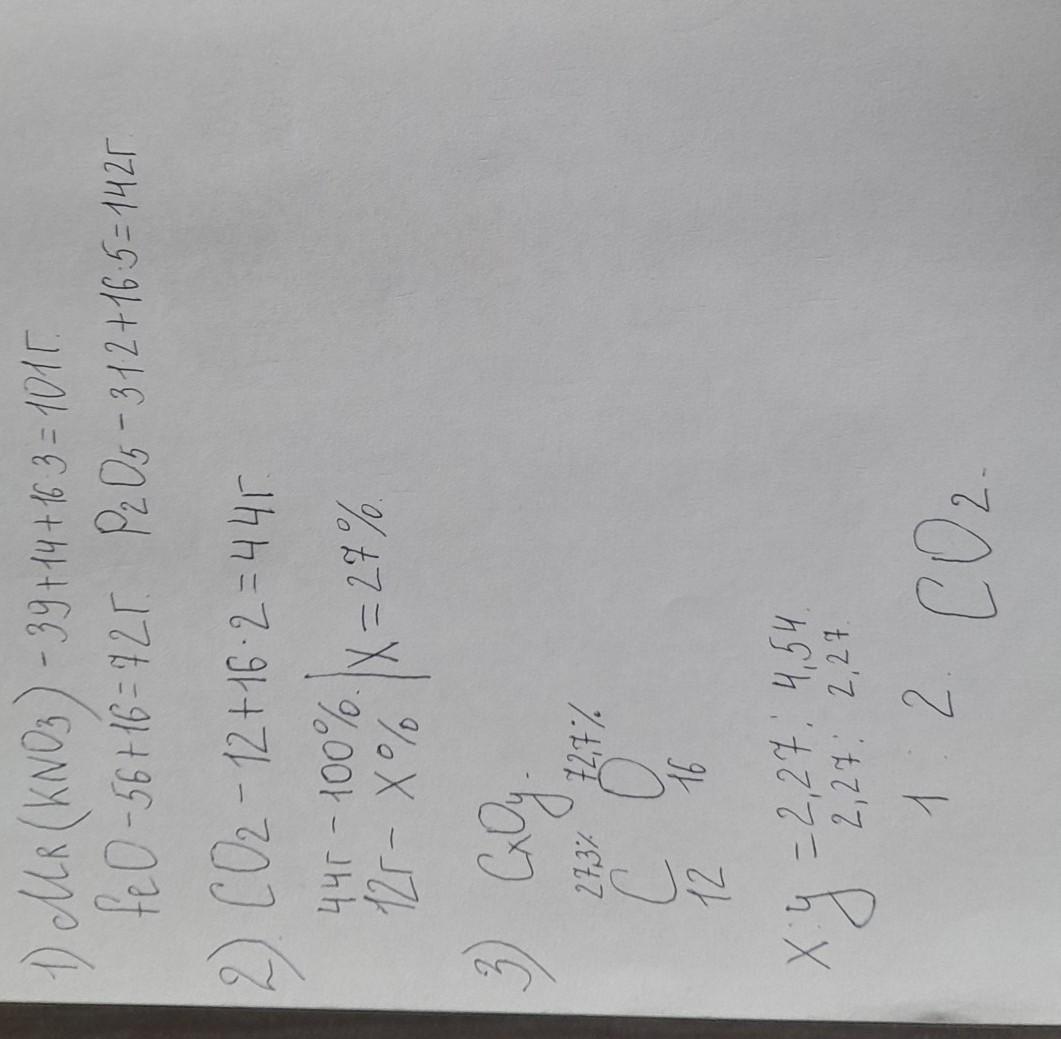 1) Mr(KNO3) - 39+14+16·3=101г.
FeO-56+16=72г. P2O5-31·2+16·5=142г
2). CO2-12+16·2=44г.
44г-100%. | X=27%.
12г- X%
3) CxOy.
27,3% 72,7%
C O
12 16
x:y=2,27: 4,54.
2,27: 2,27.
1 : 2. CO2.